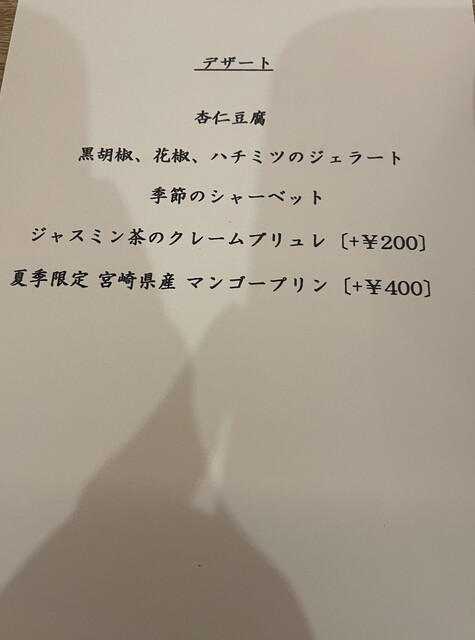 デザート
杏仁豆腐
黒胡椒、花椒、ハチミツのジェラート
季節のシャーベット
ジャスミン茶のクレームブリュレ〔+¥200〕
夏季限定 宮崎県産 マンゴープリン〔+¥400〕